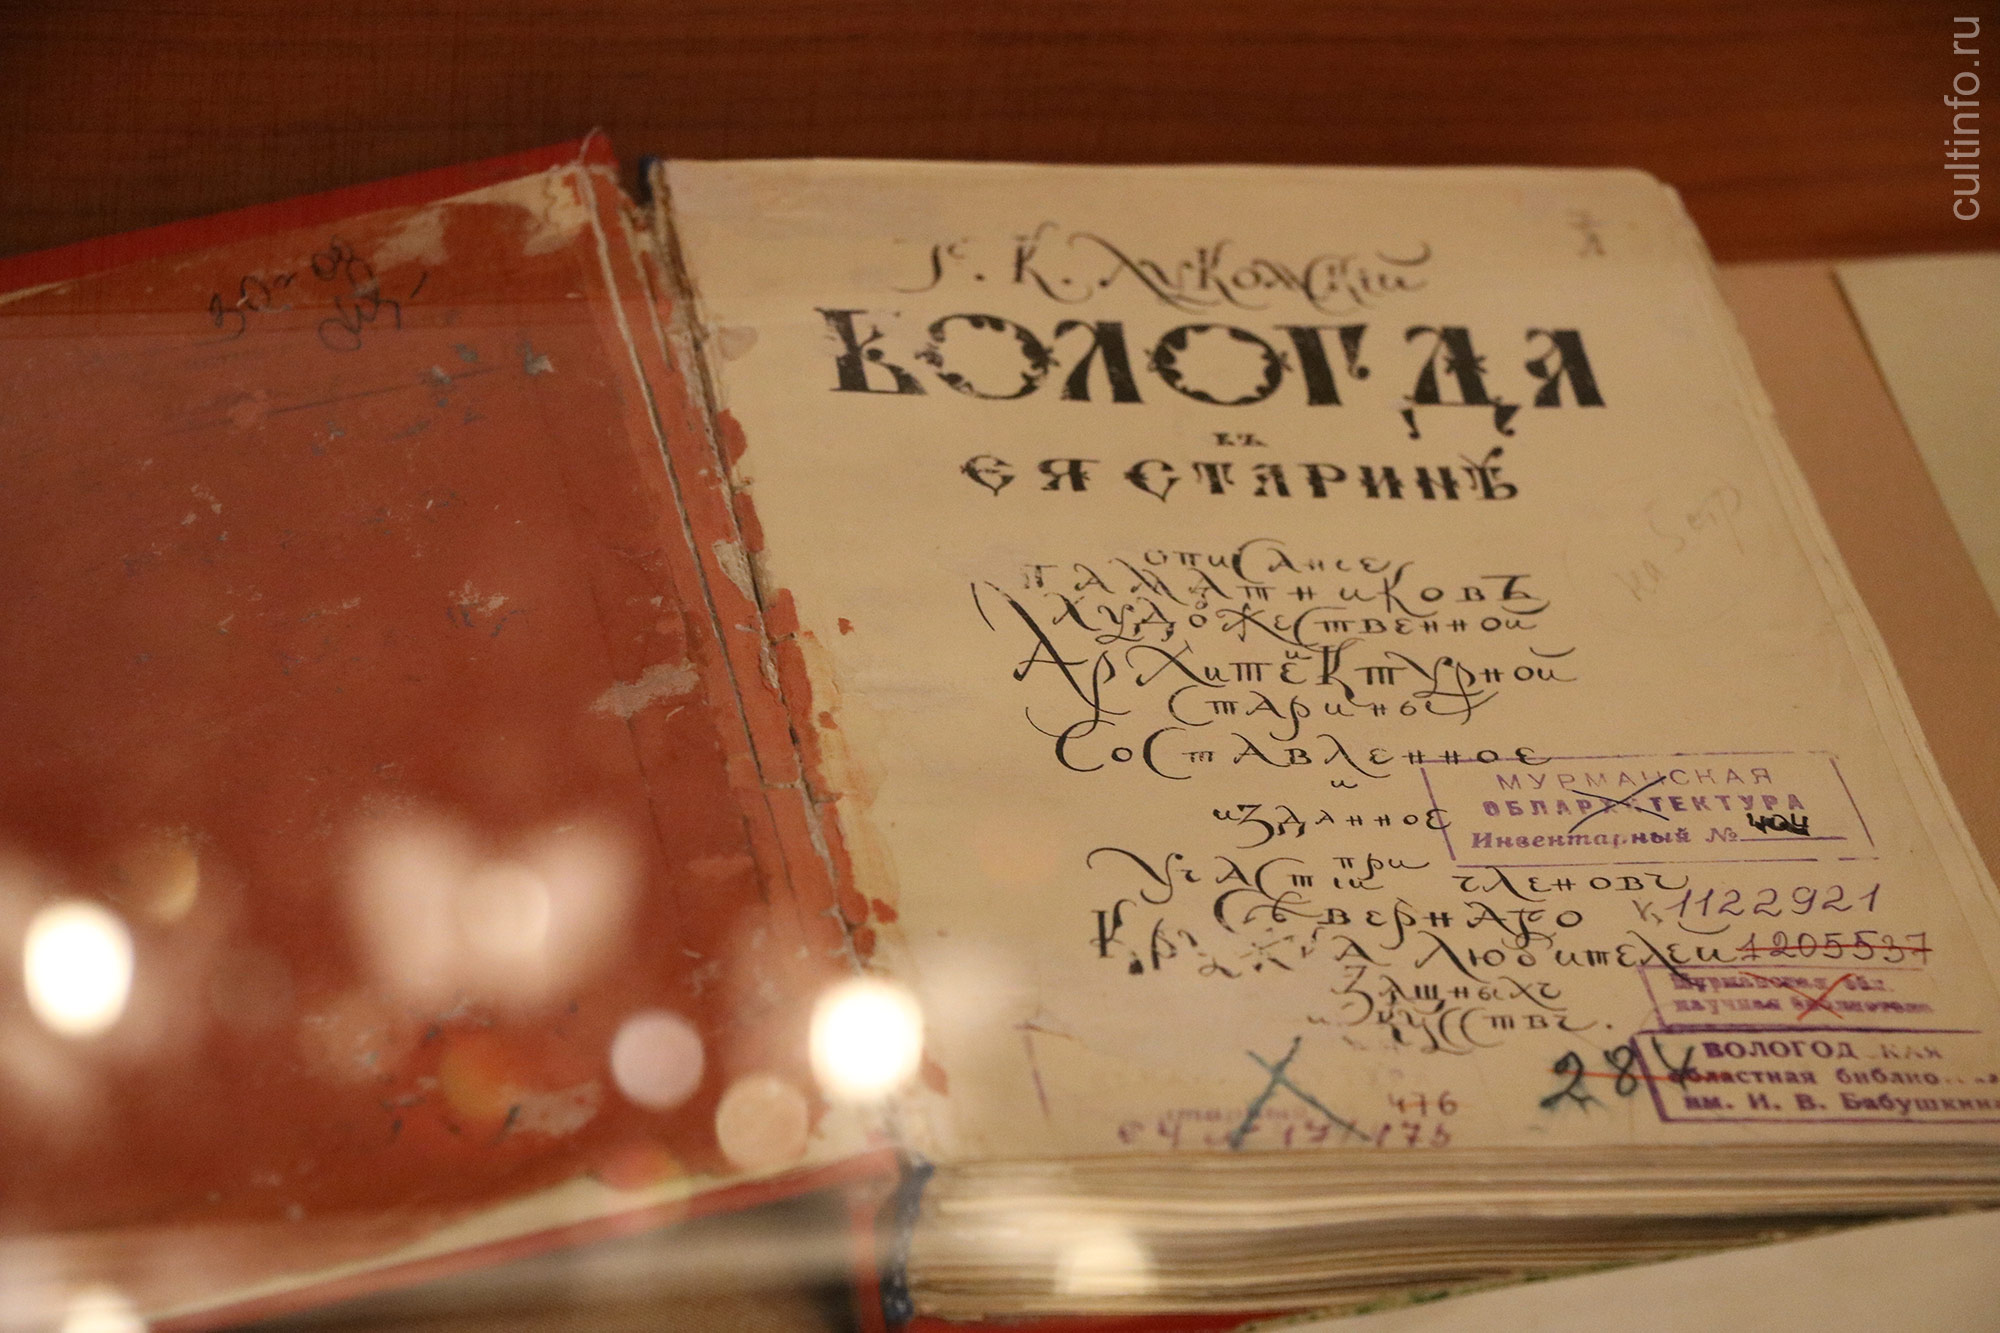 Г. К. Лукомскій
ВОЛОГДА
въ
ЕЯ СТАРИНѢ
описаніе
памятниковъ
художественной
и
Архитектурной
старины
Составленное
и
изданное
при
Участіи членовъ
Сѣвернаго
Кружка Любителей
Изящныхъ
искусствъ.
МУРМАНСКАЯ
ОБЛАРХИТЕКТУРА
Инвентарный № 404
1122921
1205537
Мурманская обл.
научная библиотека
284
ВОЛОГОДСКАЯ
областная библиотека
им. И. В. Бабушкина
476
cultinfo.ru